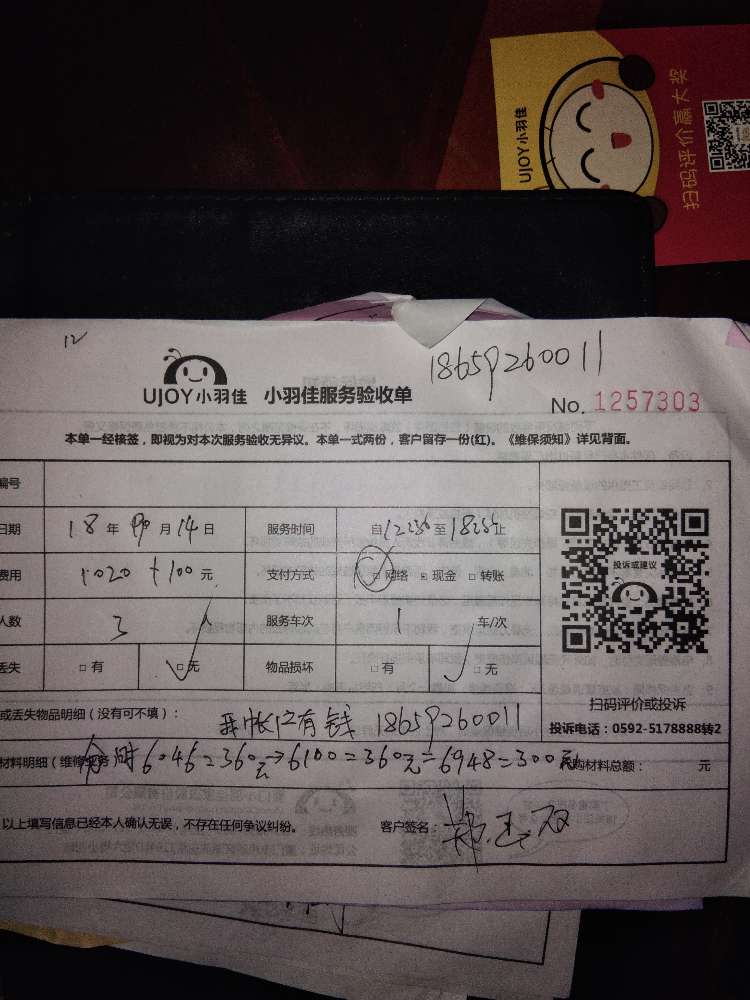 UJOY小羽佳
扫码评价赢大奖
12
18659260011
UJOY小羽佳 小羽佳服务验收单
No. 1257303
本单一经核签，即视为对本次服务验收无异议。本单一式两份，客户留存一份(红)。《维保须知》详见背面。
编号
日期 18年 月14日 服务时间 自 至 止
费用 1020+100元 支付方式 □网络 □现金 □转账
人数 3 服务车次 1 车/次
丢失 □有 □无 物品损坏 □有 □无
投诉或建议
扫码评价或投诉
投诉电话：0592-5178888转2
或丢失物品明细（没有可不填）： 有钱 18659260011
材料明细（维修业务 6100=360元 6948=300元 购材料总额： 元
以上填写信息已经本人确认无误，不存在任何争议纠纷。 客户签名：